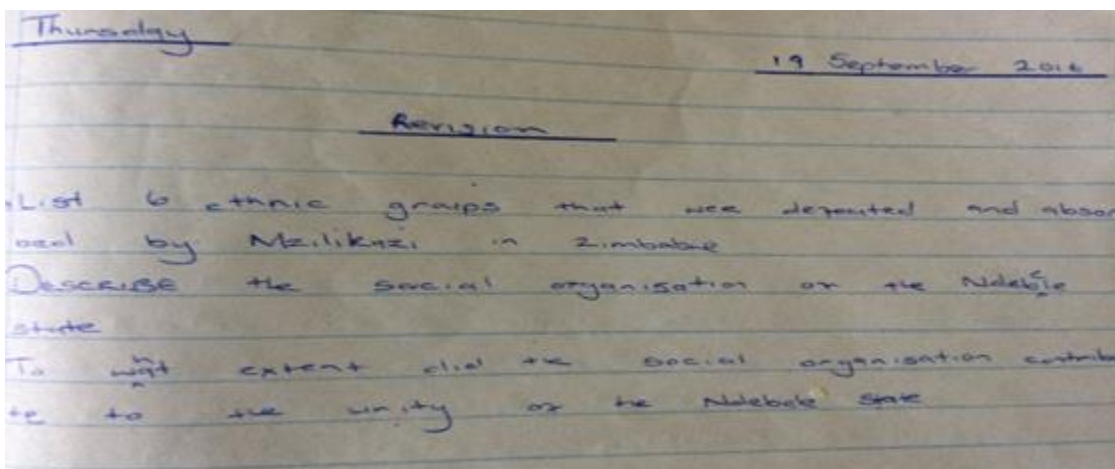 Thursday
19 September 2016
Revision
List 6 ethnic groups that wee defeated and absor
bed by Mzilikazi in Zimbabwe
DESCRIBE the social organisation of the Ndebele
state
To what extent did the social organisation contribu
te to the unity of the Ndebele state